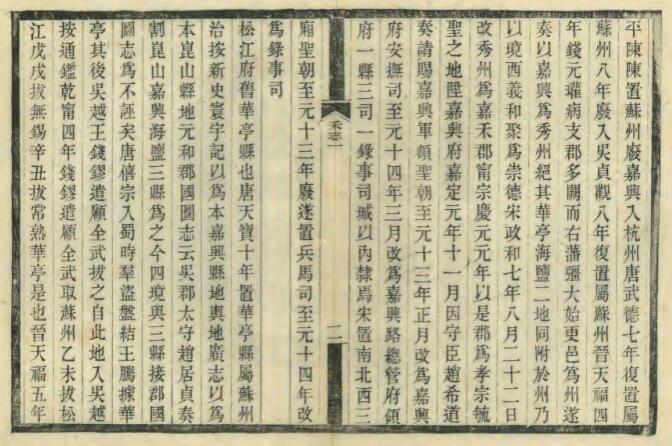 平陳陳置蘇州廢嘉興入杭州唐武德七年復置屬
蘇州八年廢入吳貞觀八年復置屬蘇州晉天福四
年錢元瓘病支郡多闕而右藩彊大始更邑爲州遂
奏以嘉興爲秀州絕其華亭海鹽二地同附於州乃
以境西義和聚爲崇德宋政和七年八月二十二日
改秀州爲嘉禾郡甯宗慶元元年以是郡爲孝宗毓
聖之地陞嘉興府嘉定元年十一月因守臣趙希道
奏請賜嘉興軍額聖朝至元十三年正月改爲嘉興
府安撫司至元十四年三月改爲嘉興路總管府領
府一縣三司一錄事司城以內隸焉宋置南北西三
禾志一
二
廂聖朝至元十三年廢遂置兵馬司至元十四年改
爲錄事司
松江府舊華亭縣也唐天寶十年置華亭縣屬蘇州
治按新史寰宇記以爲本嘉興縣地輿地廣志以爲
本崑山縣地元和郡國圖志云吳郡太守趙居貞奏
割崑山嘉興海鹽三縣爲之今四境與三縣接郡國
圖志爲不誣矣唐僖宗入蜀時羣盜盤結王騰據華
亭其後吳越王錢鏐遣顧全武拔之自此地入吳越
按通鑑乾甯四年錢鏐遣顧全武取蘇州乙未拔松
江戊戌拔無錫辛丑拔常熟華亭是也晉天福五年